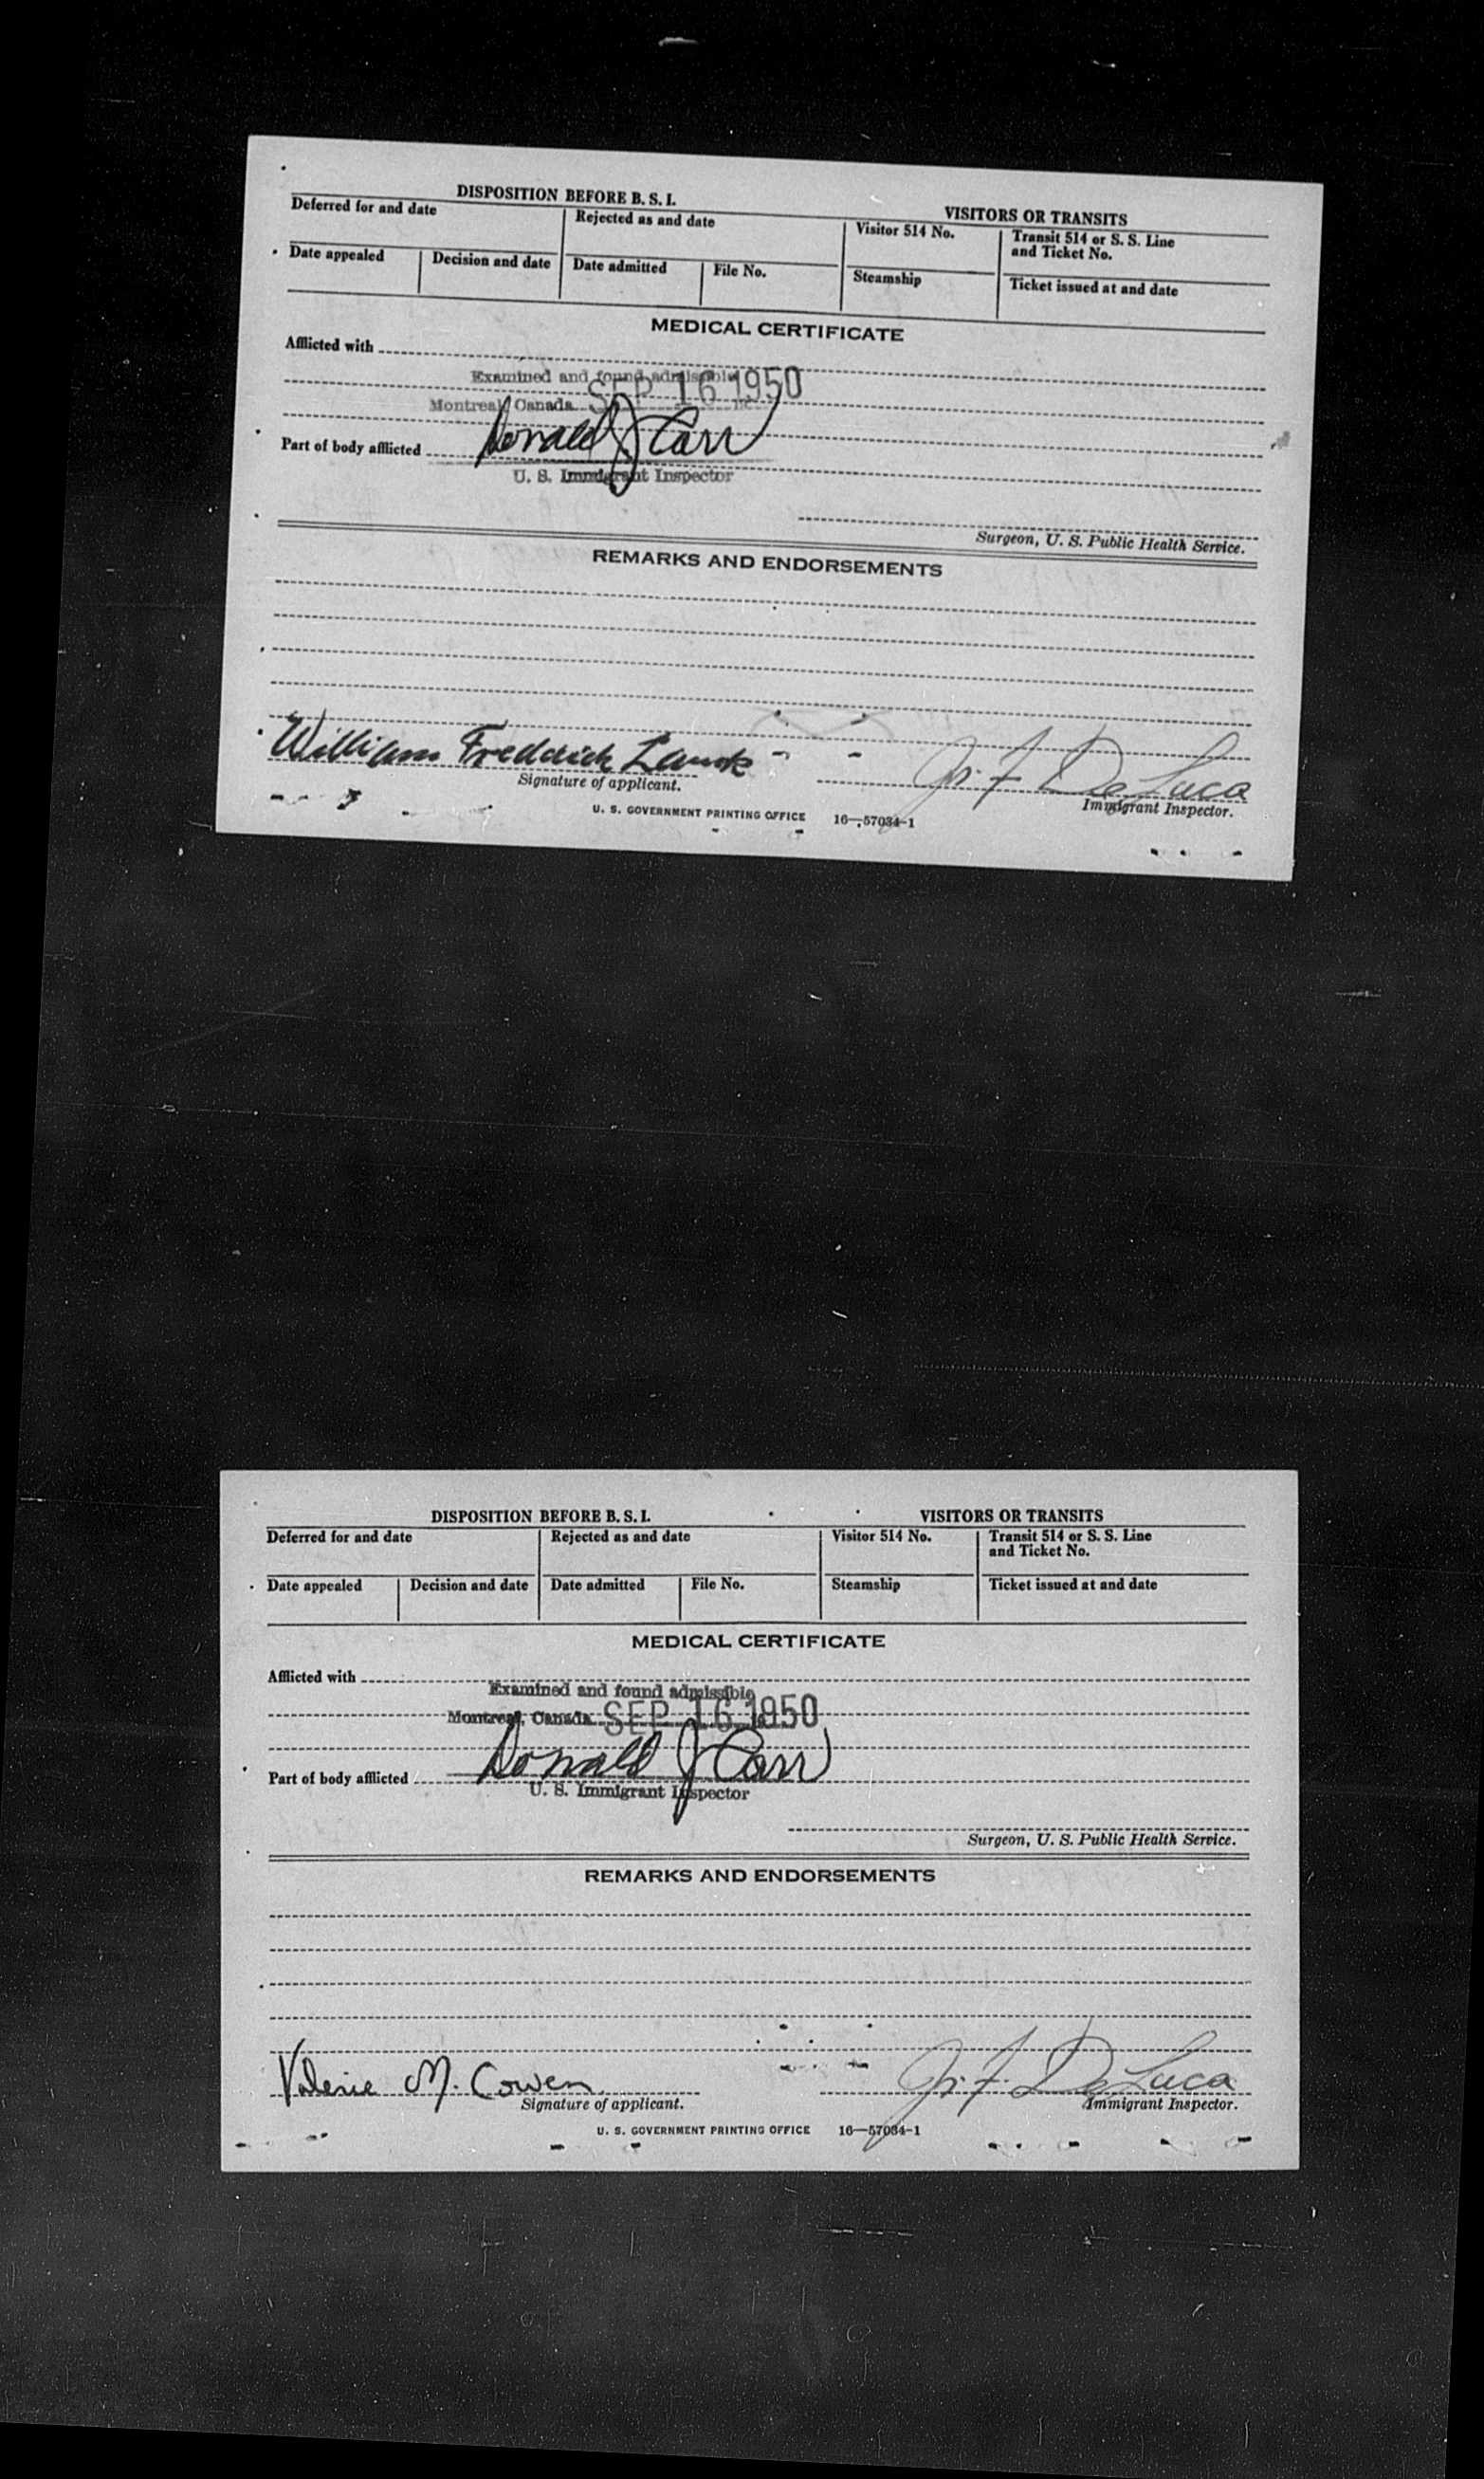 DISPOSITION BEFORE B. S. I.
VISITORS OR TRANSITS
Deferred for and date
Rejected as and date
Visitor 514 No.
Transit 514 or S. S. Line
and Ticket No.
Date appealed
Decision and date
Date admitted
File No.
Steamship
Ticket issued at and date
MEDICAL CERTIFICATE
Afflicted with
Examined and found admissible
Montreal, Canada SEP 16 1950
Part of body afflicted
Donald J Carr
U. S. Immigrant Inspector
Surgeon, U. S. Public Health Service.
REMARKS AND ENDORSEMENTS
William Fredrick
Signature of applicant.
De Luca
Immigrant Inspector.
U. S. GOVERNMENT PRINTING OFFICE 16—57034-1
DISPOSITION BEFORE B. S. I.
VISITORS OR TRANSITS
Deferred for and date
Rejected as and date
Visitor 514 No.
Transit 514 or S. S. Line
and Ticket No.
Date appealed
Decision and date
Date admitted
File No.
Steamship
Ticket issued at and date
MEDICAL CERTIFICATE
Afflicted with
Examined and found admissible
Montreal, Canada SEP 16 1950
Part of body afflicted
Donald J Carr
U. S. Immigrant Inspector
Surgeon, U. S. Public Health Service.
REMARKS AND ENDORSEMENTS
Valerie M. Cowen
Signature of applicant.
De Luca
Immigrant Inspector.
U. S. GOVERNMENT PRINTING OFFICE 16—57034-1